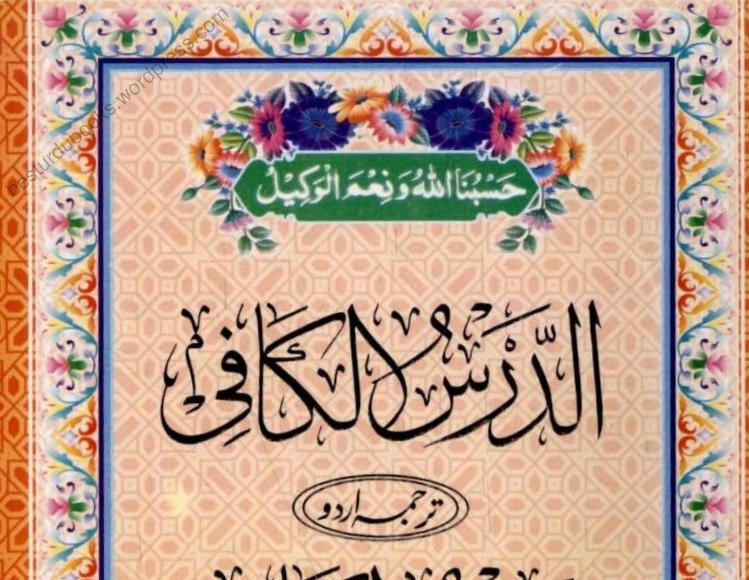 besturdubooks.wordpress.com
حَسْبُنَا اللهُ وَنِعْمَ الْوَكِيْلُ
الدَّرْسُ الْكَافِي
ترجمہ اردو